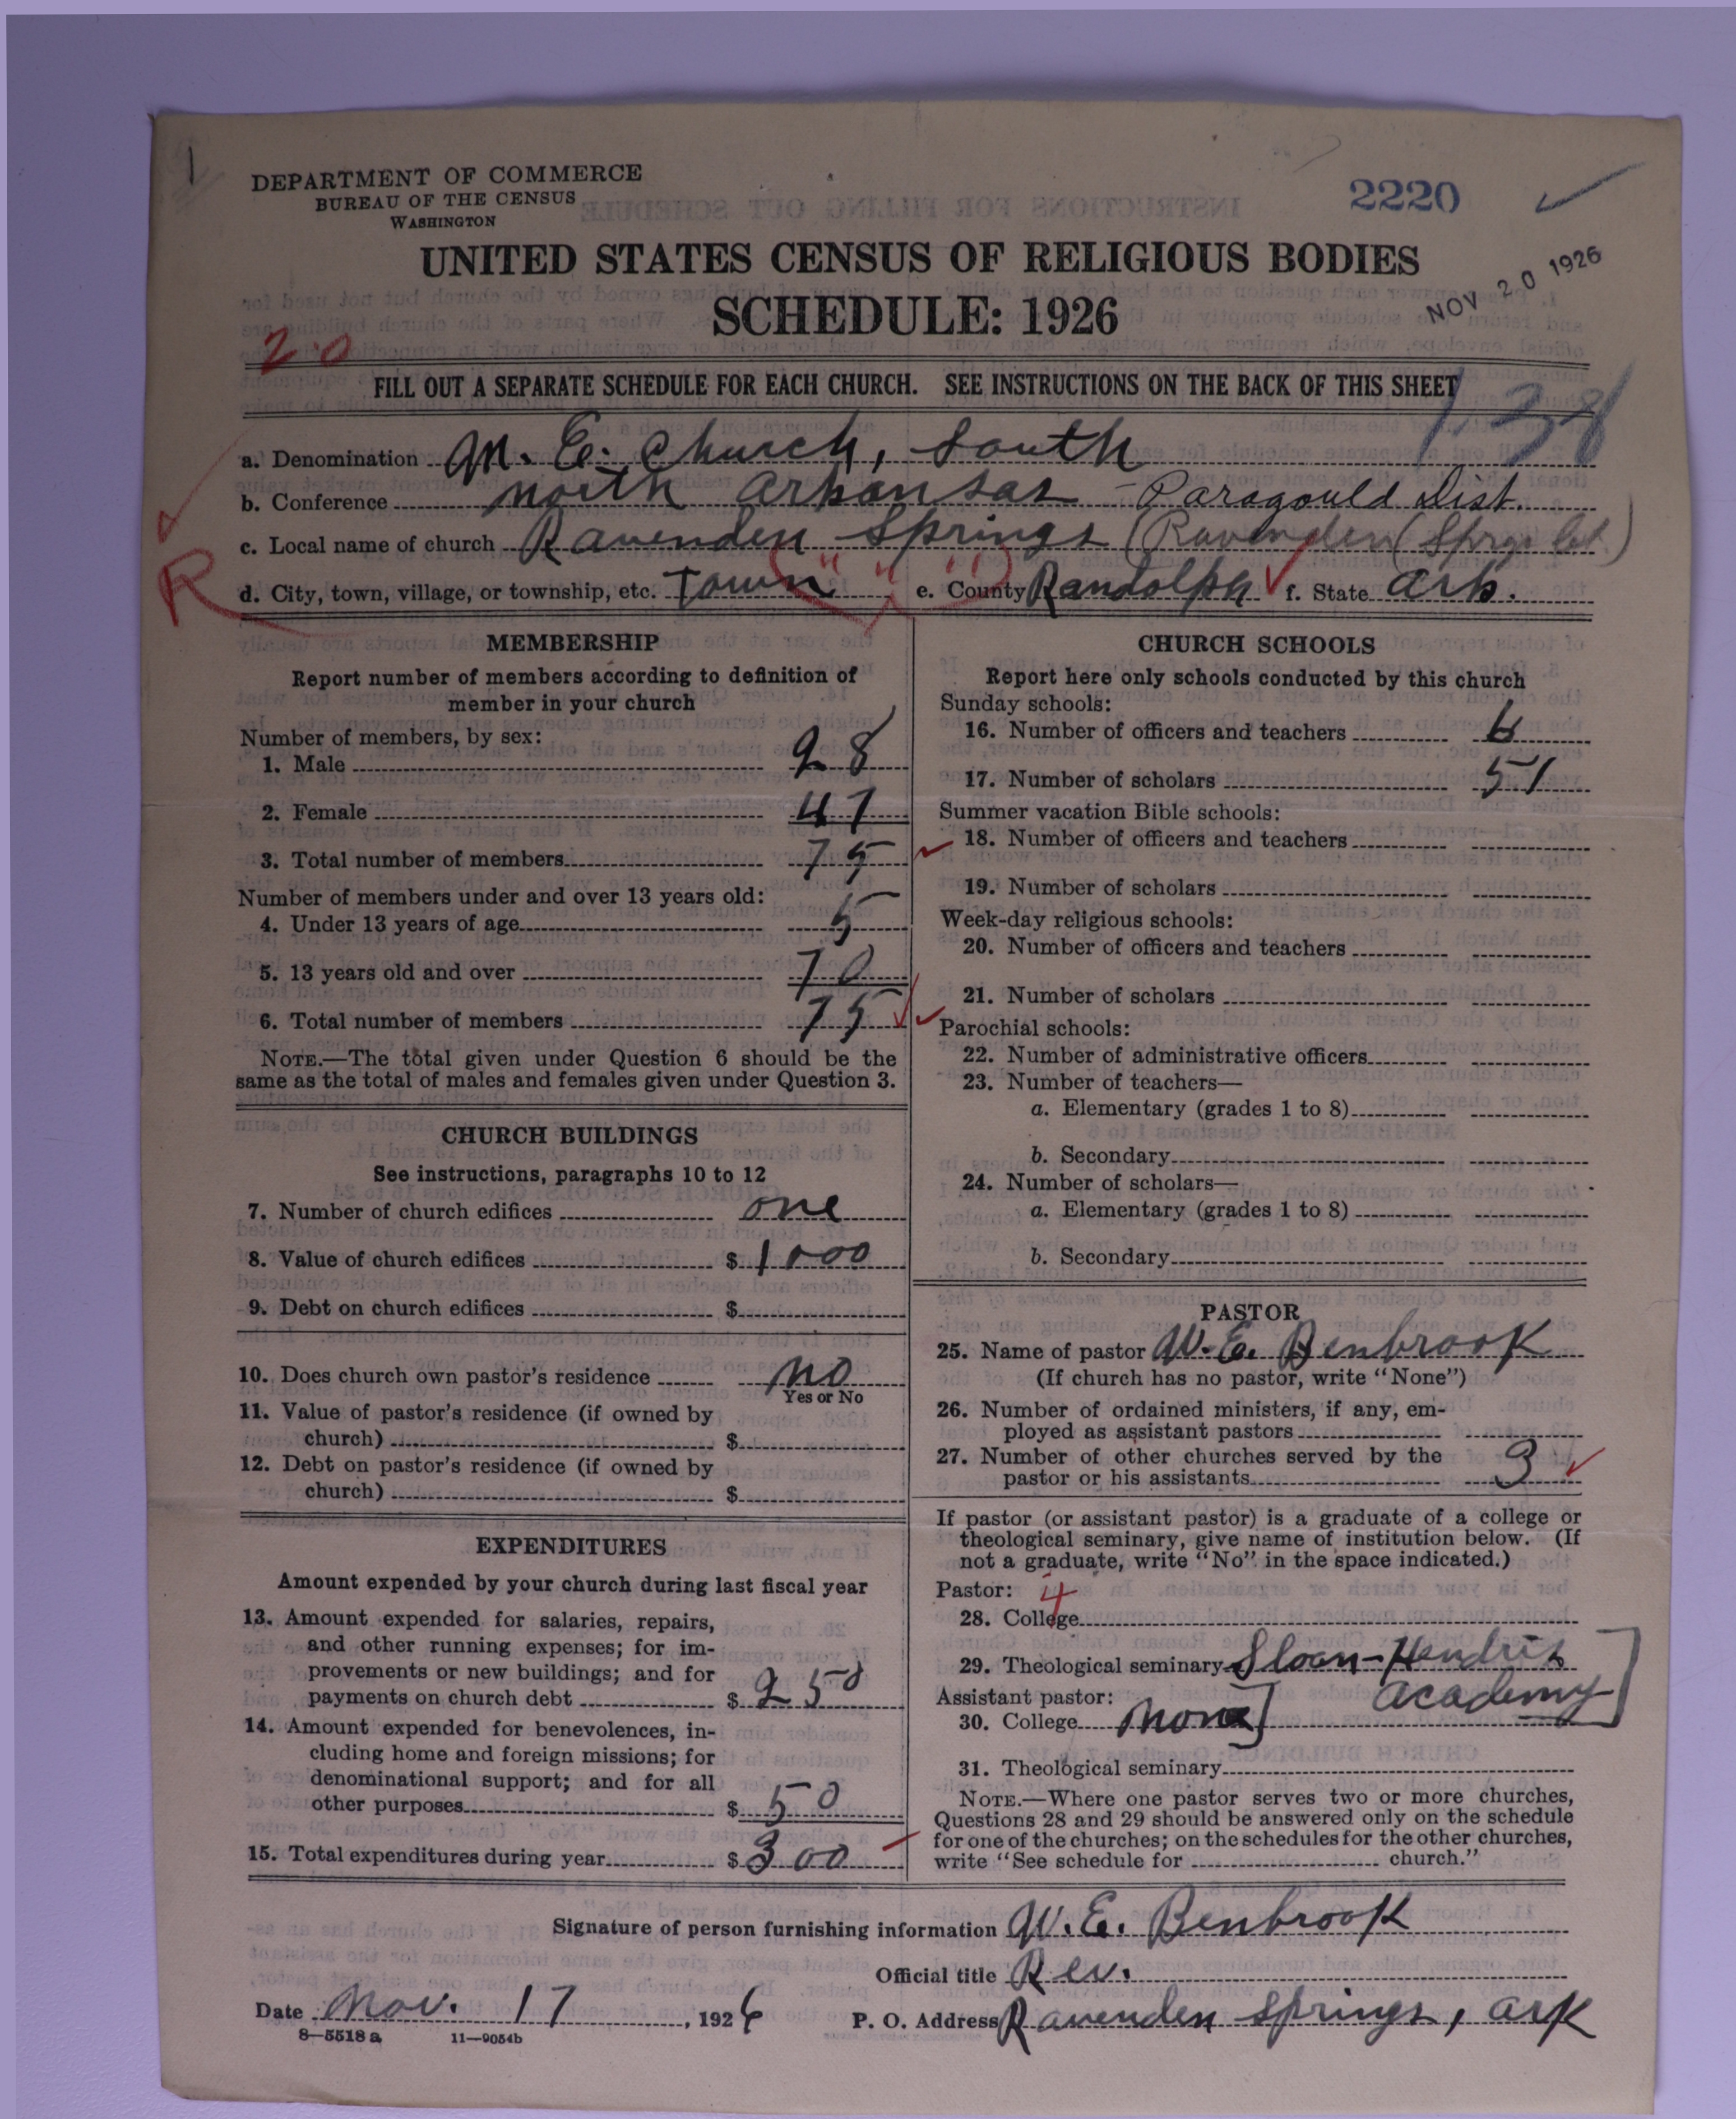 DEPARTMENT OF COMMERCE
BUREAU OF THE CENSUS
WASHINGTON
2220
UNITED STATES CENSUS OF RELIGIOUS BODIES
SCHEDULE: 1926
NOV 20 1926
20
FILL OUT A SEPARATE SCHEDULE FOR EACH CHURCH. SEE INSTRUCTIONS ON THE BACK OF THIS SHEET
1-38
a. Denomination M. E. Church, South
b. Conference North Arkansas - Paragould Dist.
c. Local name of church Ravenden Springs (Ravenden Sprgs
d. City, town, village, or township, etc. Town e. County Randolph f. State Ark.
R
MEMBERSHIP
Report number of members according to definition of
member in your church
Number of members, by sex:
1. Male 28
2. Female 47
3. Total number of members 75
Number of members under and over 13 years old:
4. Under 13 years of age 5
5. 13 years old and over 70
6. Total number of members 75
NOTE.—The total given under Question 6 should be the
same as the total of males and females given under Question 3.
CHURCH BUILDINGS
See instructions, paragraphs 10 to 12
7. Number of church edifices one
8. Value of church edifices $ 1000
9. Debt on church edifices $
10. Does church own pastor's residence No
Yes or No
11. Value of pastor's residence (if owned by
church) $
12. Debt on pastor's residence (if owned by
church) $
EXPENDITURES
Amount expended by your church during last fiscal year
13. Amount expended for salaries, repairs,
and other running expenses; for im-
provements or new buildings; and for
payments on church debt $ 250
14. Amount expended for benevolences, in-
cluding home and foreign missions; for
denominational support; and for all
other purposes $ 50
15. Total expenditures during year $ 300
CHURCH SCHOOLS
Report here only schools conducted by this church
Sunday schools:
16. Number of officers and teachers 6
17. Number of scholars 51
Summer vacation Bible schools:
18. Number of officers and teachers
19. Number of scholars
Week-day religious schools:
20. Number of officers and teachers
21. Number of scholars
Parochial schools:
22. Number of administrative officers
23. Number of teachers—
a. Elementary (grades 1 to 8)
b. Secondary
24. Number of scholars—
a. Elementary (grades 1 to 8)
b. Secondary
PASTOR
25. Name of pastor W. E. Benbrook
(If church has no pastor, write "None")
26. Number of ordained ministers, if any, em-
ployed as assistant pastors
27. Number of other churches served by the
pastor or his assistants 3
If pastor (or assistant pastor) is a graduate of a college or
theological seminary, give name of institution below. (If
not a graduate, write "No" in the space indicated.)
Pastor: 4
28. College
29. Theological seminary Sloan-Hendrix
Academy
Assistant pastor:
30. College None
31. Theological seminary
NOTE.—Where one pastor serves two or more churches,
Questions 28 and 29 should be answered only on the schedule
for one of the churches; on the schedules for the other churches,
write "See schedule for church."
Signature of person furnishing information W. E. Benbrook
Official title Rev.
Date Nov. 17, 1926 P. O. Address Ravenden Springs, Ark
8—5518 a 11—9054b